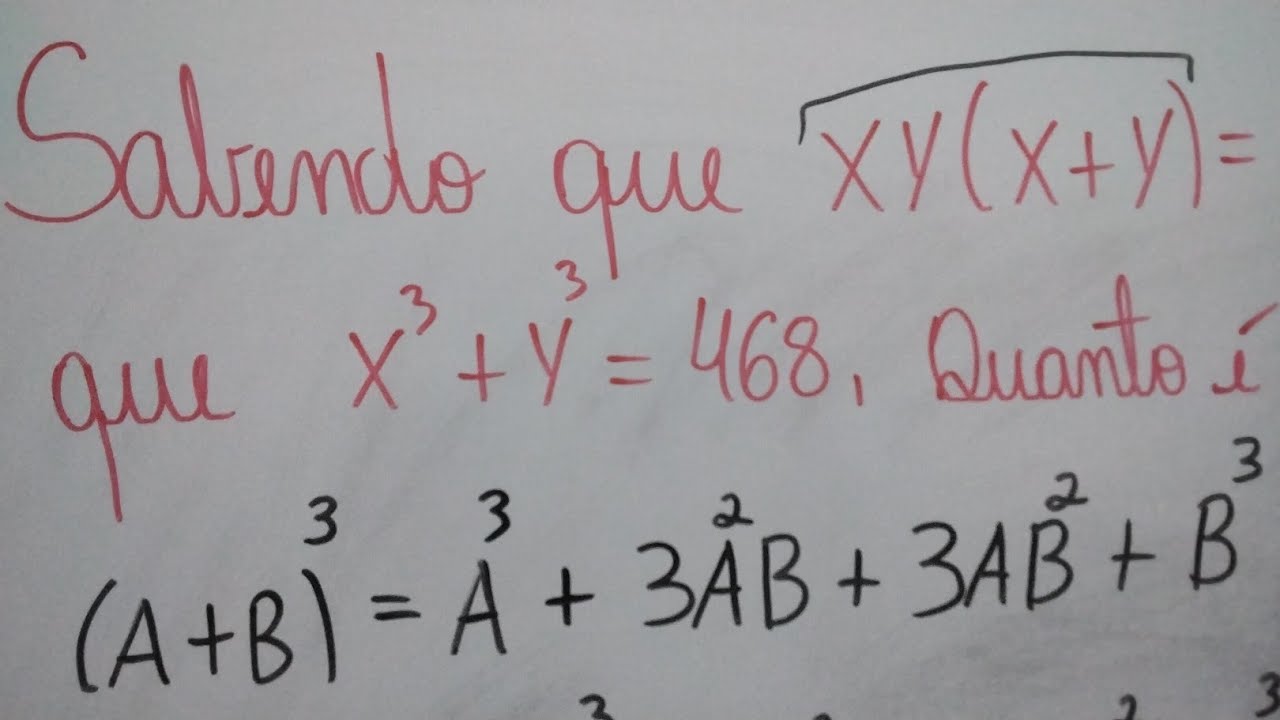 Sabendo que XY(X+Y)=
que X³+Y³=468. Quanto é
(A+B)³=A³+3A²B+3AB²+B³